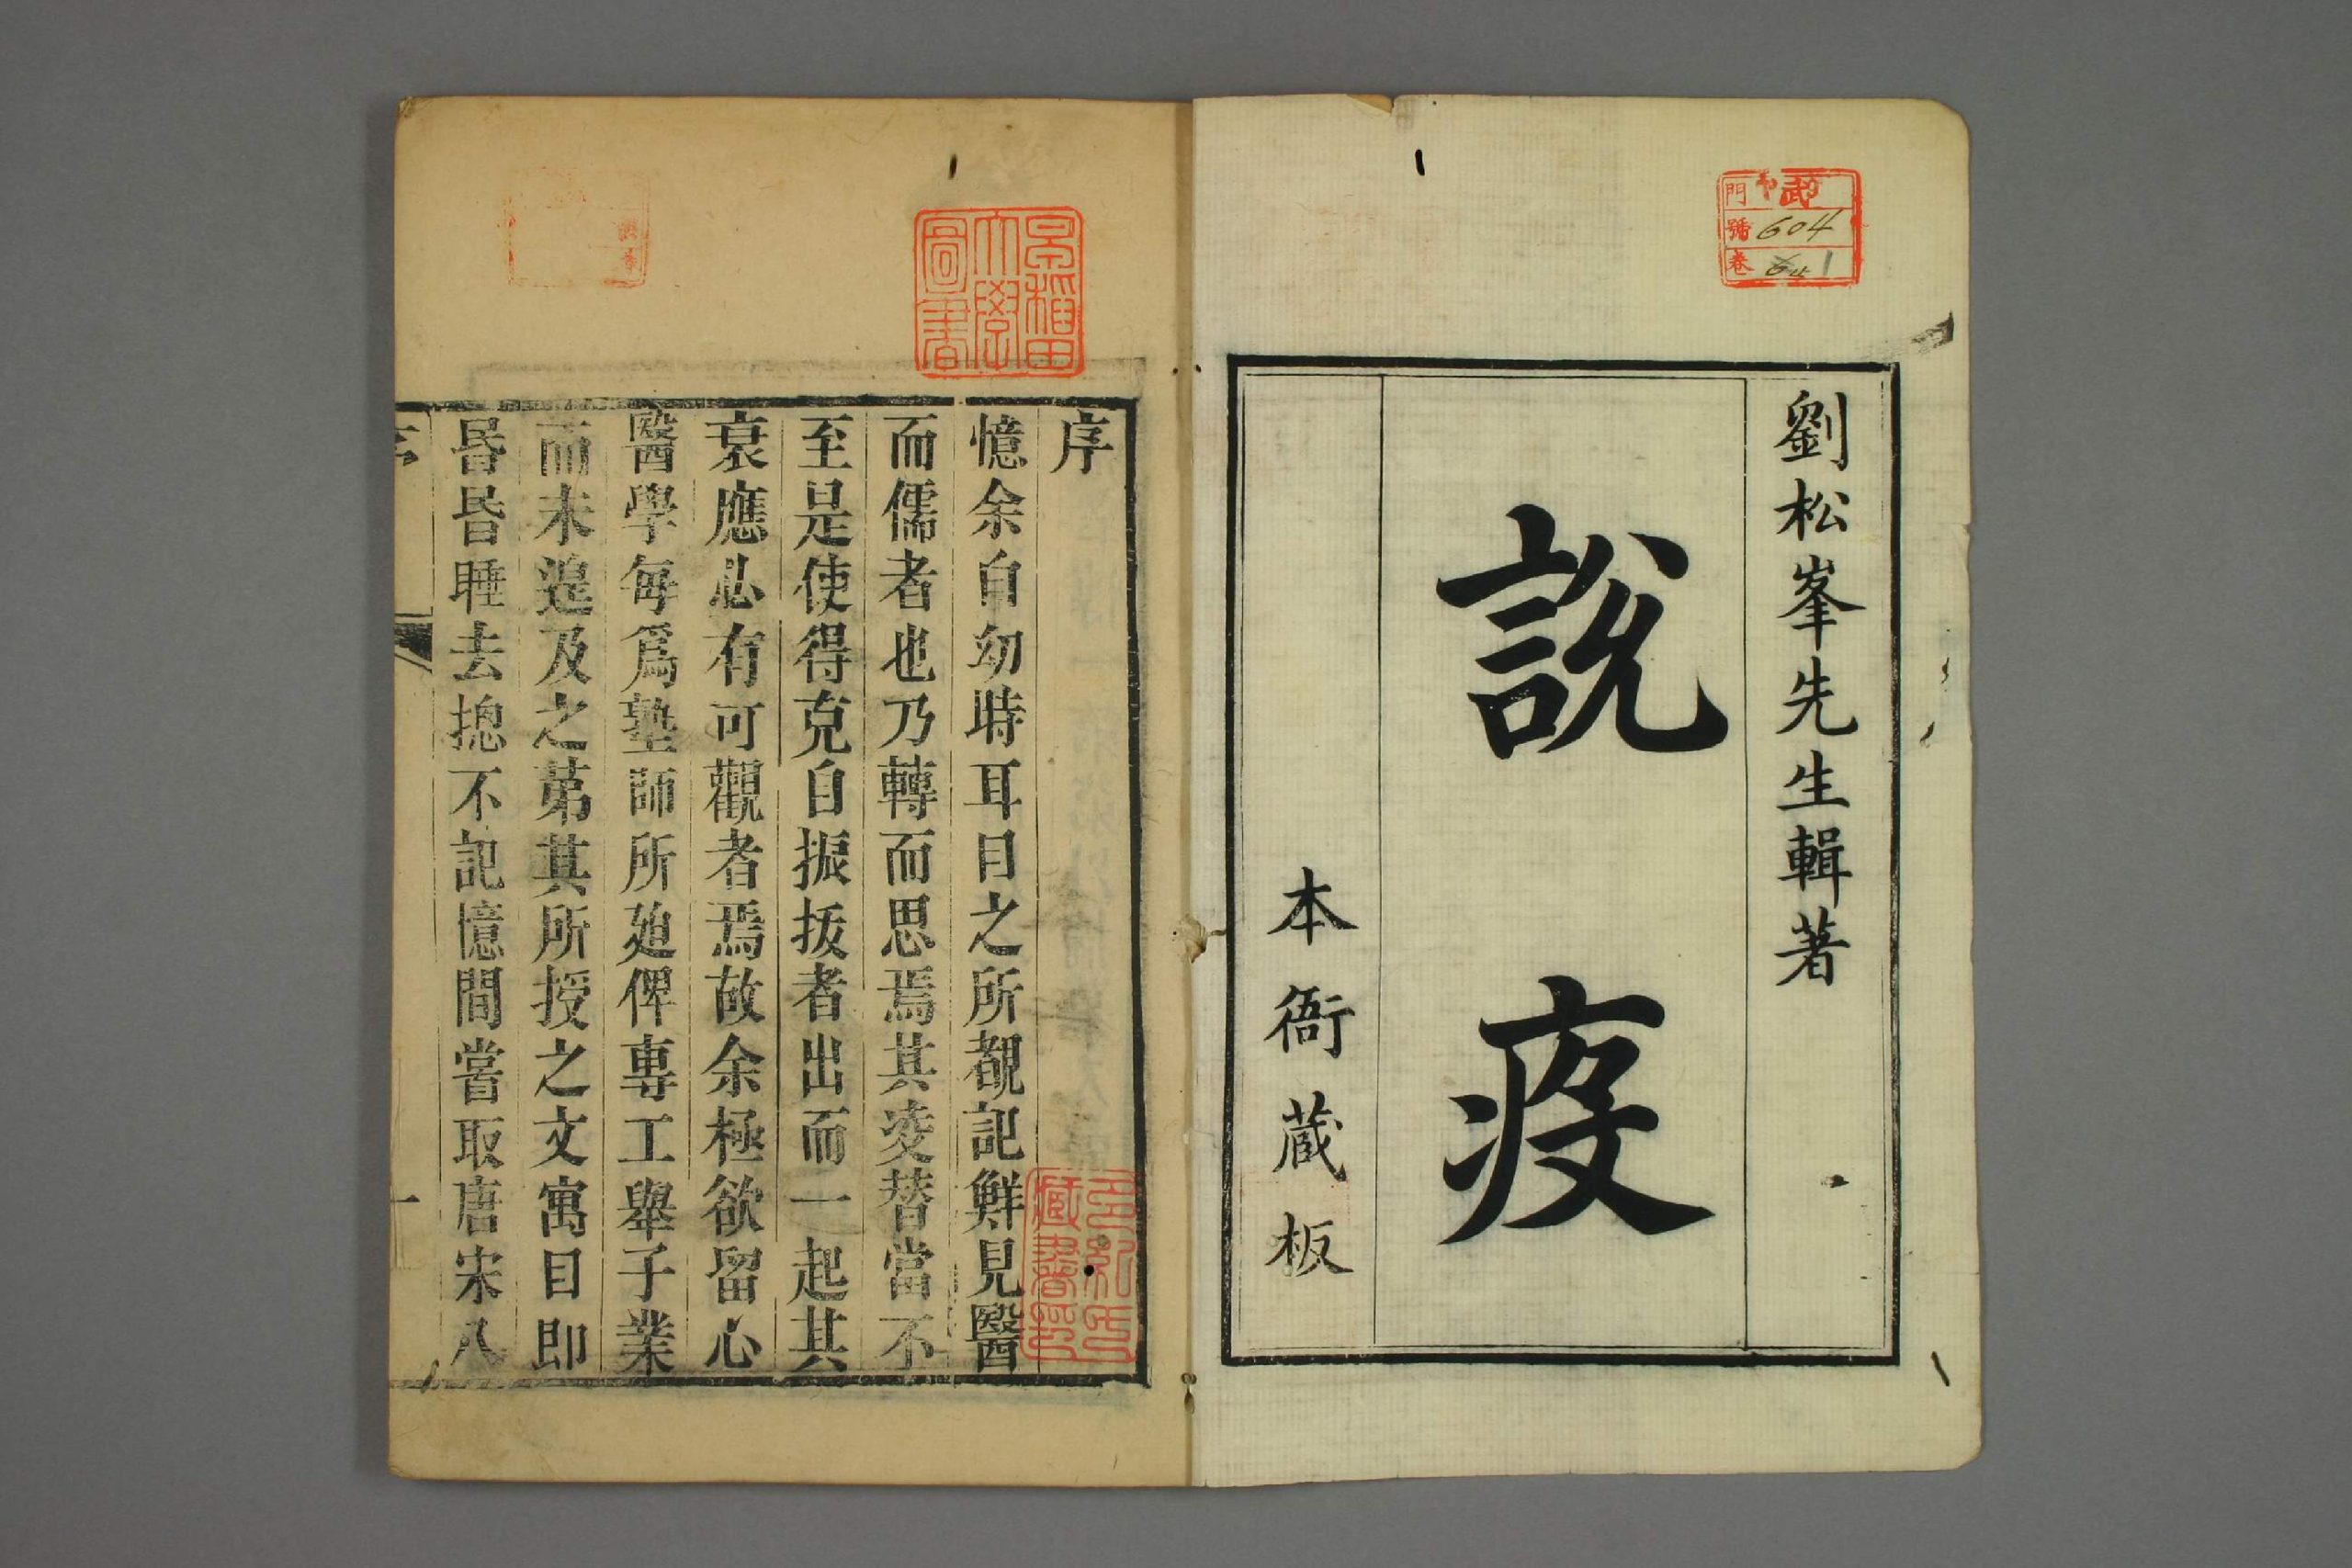 劉松峯先生輯著
說疫
本衙藏板
門
號 604
卷 1
早稲田大學圖書
序
憶余自幼時耳目之所覩記鮮見醫
而儒者也乃轉而思焉其凌替當不
至是使得克自振拔者出而一起其
衰應必有可觀者焉故余極欲留心
醫學每爲塾師所廹俾專工舉子業
而未遑及之第其所授之文寓目即
昬昬睡去摠不記憶間嘗取唐宋八
序
一
藏書印